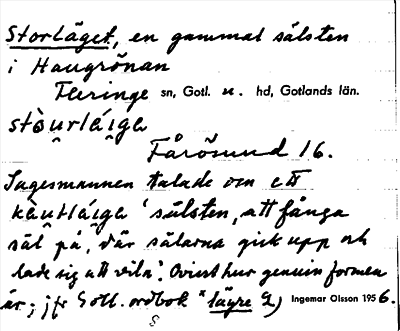 Storläget, en gammal sälsten
i Haugrönan
Fleringe sn, Gotl. n. hd, Gotlands län.
stòurláiga
Fårösund 16.
Sagesmannen talade om ett
kàutláiga 'sälsten, att fånga
säl på, där sälarna gick upp och
lade sig att vila'. Ovisst hur genuin formen
är; jfr Gotl. ordbok * lägre 2) Ingemar Olsson 1956.